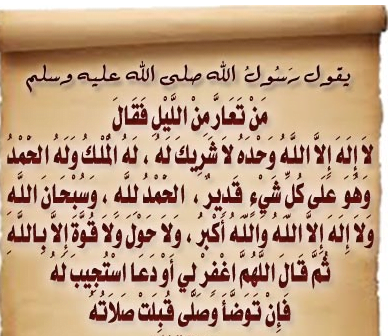 يقول رَسُولُ الله صلى الله عليه وسلم
مَنْ تَعَارَّ مِنْ اللَّيْلِ فَقَالَ
لا إِلَهَ إِلاَّ اللَّهُ وَحْدَهُ لا شَرِيكَ لَهُ ، لَهُ الْمُلْكُ وَلَهُ الْحَمْدُ
وَهُوَ عَلَى كُلِّ شَيْءٍ قَدِيرٌ ، الْحَمْدُ لله ، وَسُبْحَانَ اللَّهِ
وَلا إِلَهَ إِلاَّ اللَّهُ وَاللَّهُ أَكْبَرُ ، وَلا حَوْلَ وَلا قُوَّةَ إِلاَّ بِاللَّهِ
ثُمَّ قَالَ اللَّهُمَّ اغْفِرْ لِي أَوْ دَعَا اسْتُجِيبَ لَهُ
فَإِنْ تَوَضَّأَ وَصَلَّى قُبِلَتْ صَلَاتُهُ